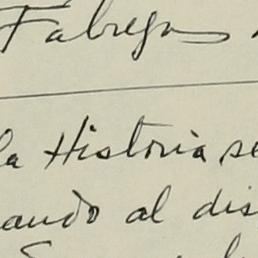 Fabrega
la Historia se
ando al dis